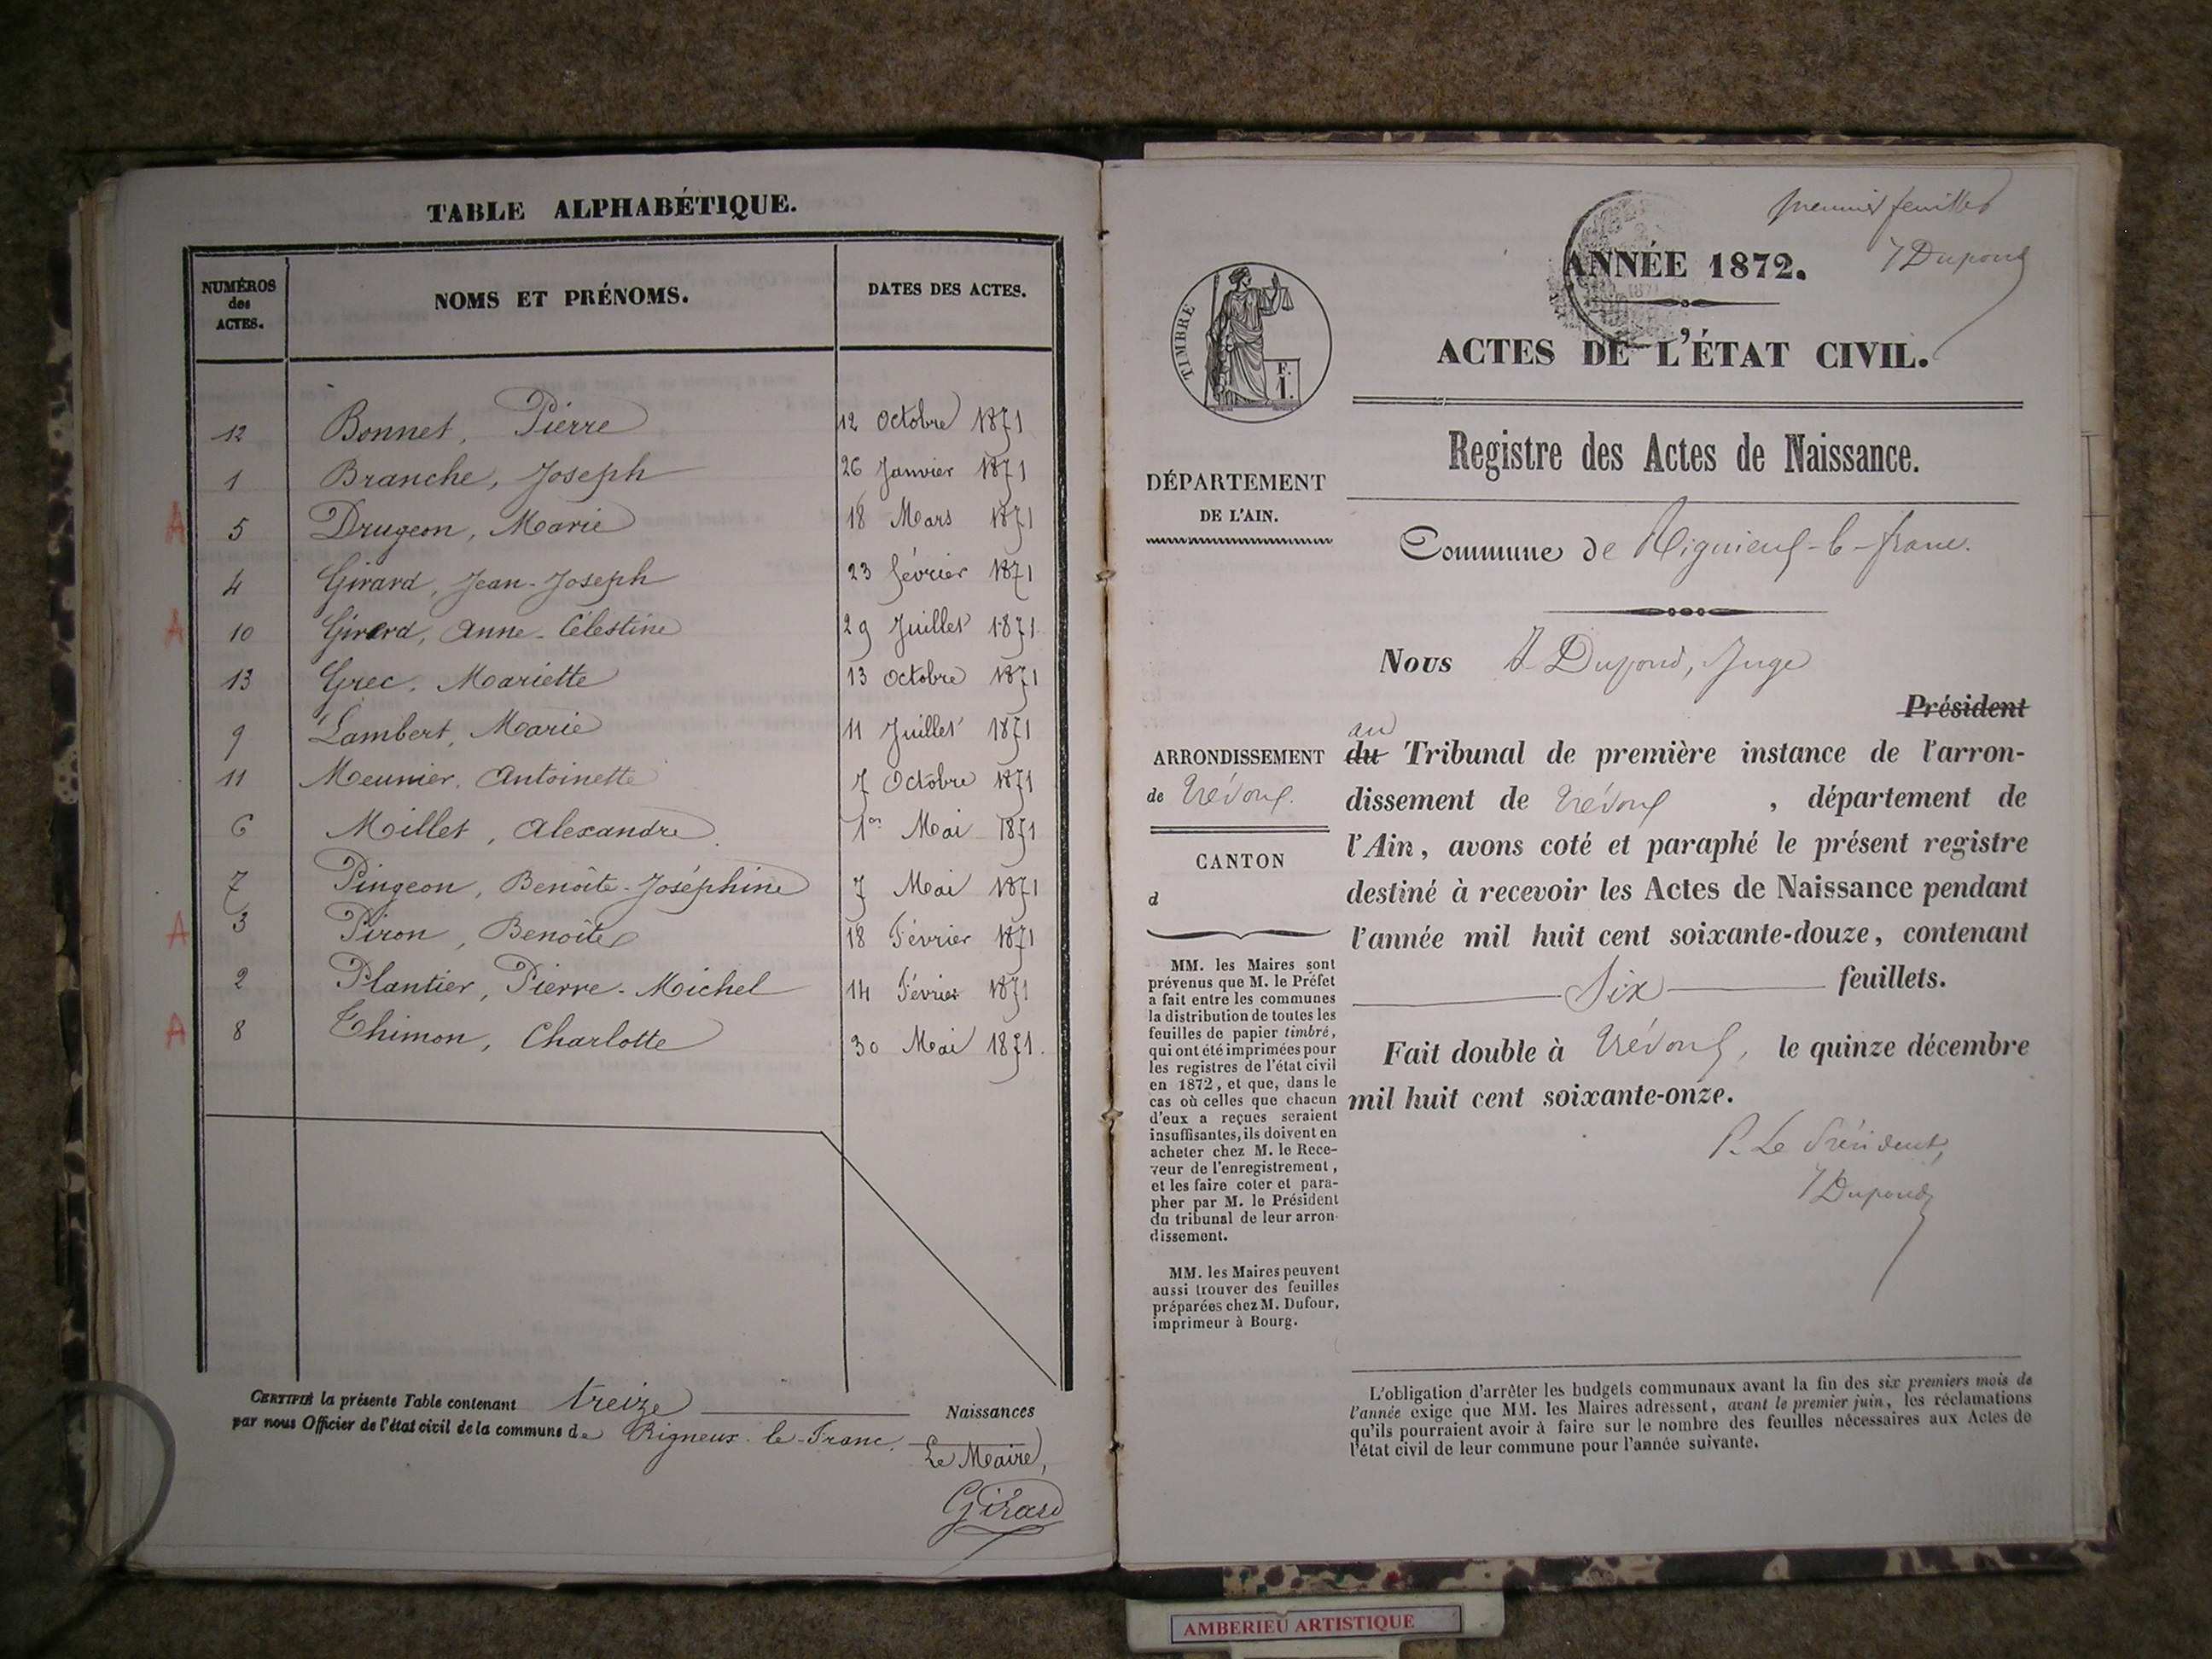 TABLE ALPHABÉTIQUE.
NUMÉROS
des
ACTES.
NOMS ET PRÉNOMS.
DATES DES ACTES.
12 Bonnet, Pierre 12 Octobre 1871
1 Branche, Joseph 26 Janvier 1871
A 5 Drugeon, Marie 18 Mars 1871
4 Girard, Jean-Joseph 23 février 1871
A 10 Girard, Anne-Célestine 29 Juillet 1871
13 Grec, Mariette 13 Octobre 1871
9 Lambert, Marie 11 Juillet 1871
11 Meunier, Antoinette 7 Octobre 1871
6 Millet, Alexandre 1er Mai 1871
7 Pingeon, Benoîte-Joséphine 7 Mai 1871
A 3 Piron, Benoîte 18 Février 1871
2 Plantier, Pierre-Michel 14 Février 1871
A 8 Thimon, Charlotte 30 Mai 1871.
CERTIFIÉ la présente Table contenant treize Naissances
par nous Officier de l'état civil de la commune de Rigneux-le-Franc.
Le Maire,
Girard
premier feuillet
Dupond
ANNÉE 1872.
TIMBRE
F.
1.
ACTES DE L'ÉTAT CIVIL.
Registre des Actes de Naissance.
DÉPARTEMENT
DE L'AIN.
Commune de Rignieux-le-franc.
Nous Dupond, Juge
Président
au
du Tribunal de première instance de l'arron-
dissement de Trévoux, département de
l'Ain, avons coté et paraphé le présent registre
destiné à recevoir les Actes de Naissance pendant
l'année mil huit cent soixante-douze, contenant
Six feuillets.
Fait double à Trévoux, le quinze décembre
mil huit cent soixante-onze.
P. Le Président,
Dupond
ARRONDISSEMENT
de Trévoux.
CANTON
d
MM. les Maires sont
prévenus que M. le Préfet
a fait entre les communes
la distribution de toutes les
feuilles de papier timbré,
qui ont été imprimées pour
les registres de l'état civil
en 1872, et que, dans le
cas où celles que chacun
d'eux a reçues seraient
insuffisantes, ils doivent en
acheter chez M. le Rece-
veur de l'enregistrement,
et les faire coter et para-
pher par M. le Président
du tribunal de leur arron-
dissement.
MM. les Maires peuvent
aussi trouver des feuilles
préparées chez M. Dufour,
imprimeur à Bourg.
L'obligation d'arrêter les budgets communaux avant la fin des six premiers mois de
l'année exige que MM. les Maires adressent, avant le premier juin, les réclamations
qu'ils pourraient avoir à faire sur le nombre des feuilles nécessaires aux Actes de
l'état civil de leur commune pour l'année suivante.
AMBERIEU ARTISTIQUE